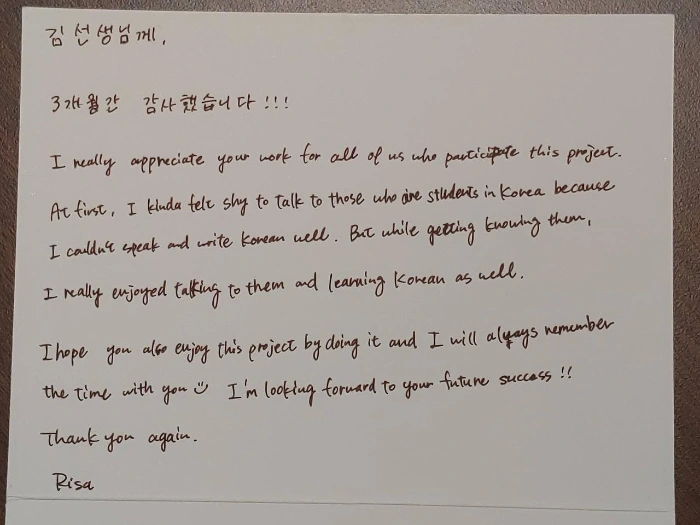 김 선생님께,
3개월간 감사했습니다!!!
I really appreciate your work for all of us who participate this project.
At first, I kinda felt shy to talk to those who are students in Korea because
I couldn't speak and write Korean well. But while getting knowing them,
I really enjoyed talking to them and learning Korean as well.
I hope you also enjoy this project by doing it and I will always remember
the time with you ☺ I'm looking forward to your future success!!
Thank you again.
Risa